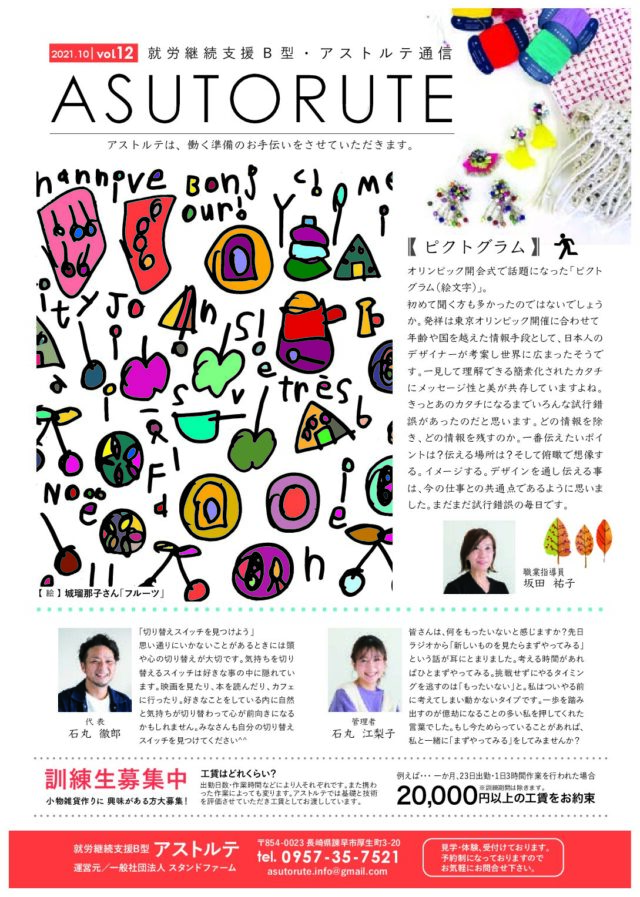 2021.10 | vol.12
就労継続支援B型・アストルテ通信
ASUTORUTE
アストルテは、働く準備のお手伝いをさせていただきます。
【ピクトグラム】
オリンピック開会式で話題になった「ピクト
グラム（絵文字）」。
初めて聞く方も多かったのではないでしょう
か。発祥は東京オリンピック開催に合わせて
年齢や国を越えた情報手段として、日本人の
デザイナーが考案し世界に広まったそうで
す。一見して理解できる簡素化されたカタチ
にメッセージ性と美が共存していますよね。
きっとあのカタチになるまでいろんな試行錯
誤があったのだと思います。どの情報を除
き、どの情報を残すのか。一番伝えたいポイ
ントは？伝える場所は？そして俯瞰で想像す
る。イメージする。デザインを通し伝える事
は、今の仕事との共通点であるように思いま
した。まだまだ試行錯誤の毎日です。
職業指導員
坂田 祐子
【絵】城瑠那子さん「フルーツ」
「切り替えスイッチを見つけよう」
思い通りにいかないことがあるときには頭
や心の切り替えが大切です。気持ちを切り
替えるスイッチは好きな事の中に隠れてい
ます。映画を見たり、本を読んだり、カフェ
に行ったり。好きなことをしている内に自然
と気持ちが切り替わって心が前向きになる
かもしれません。みなさんも自分の切り替え
スイッチを見つけてください^^
代表
石丸 徹郎
皆さんは、何をもったいないと感じますか？先日
ラジオから「新しいものを見たらまずやってみる」
という話が耳にとまりました。考える時間があれ
ばひとまずやってみる。挑戦せずにやるタイミン
グを逃すのは「もったいない」と。私はついやる前
に考えてしまい動かないタイプです。一歩を踏み
出すのが億劫になることの多い私を押してくれた
言葉でした。もし今ためらっていることがあれば、
私と一緒に「まずやってみる」をしてみませんか？
管理者
石丸 江梨子
訓練生募集中
小物雑貨作りに 興味がある方大募集！
工賃はどれくらい？
出勤日数・作業時間などにより人それぞれです。また携わ
った作業によっても変ります。アストルテでは基礎と技術
を評価させていただき工賃としてお渡ししています。
例えば・・・ 一か月、23日出勤・1日3時間作業を行われた場合
※訓練期間は除きます。
20,000円以上の工賃をお約束
就労継続支援B型 アストルテ
運営元／一般社団法人 スタンドファーム
〒854-0023 長崎県諫早市厚生町3-20
tel. 0957-35-7521
asutorute.info@gmail.com
見学・体験、受付けております。
予約制になっておりますので
お気軽にお問合せ下さい。